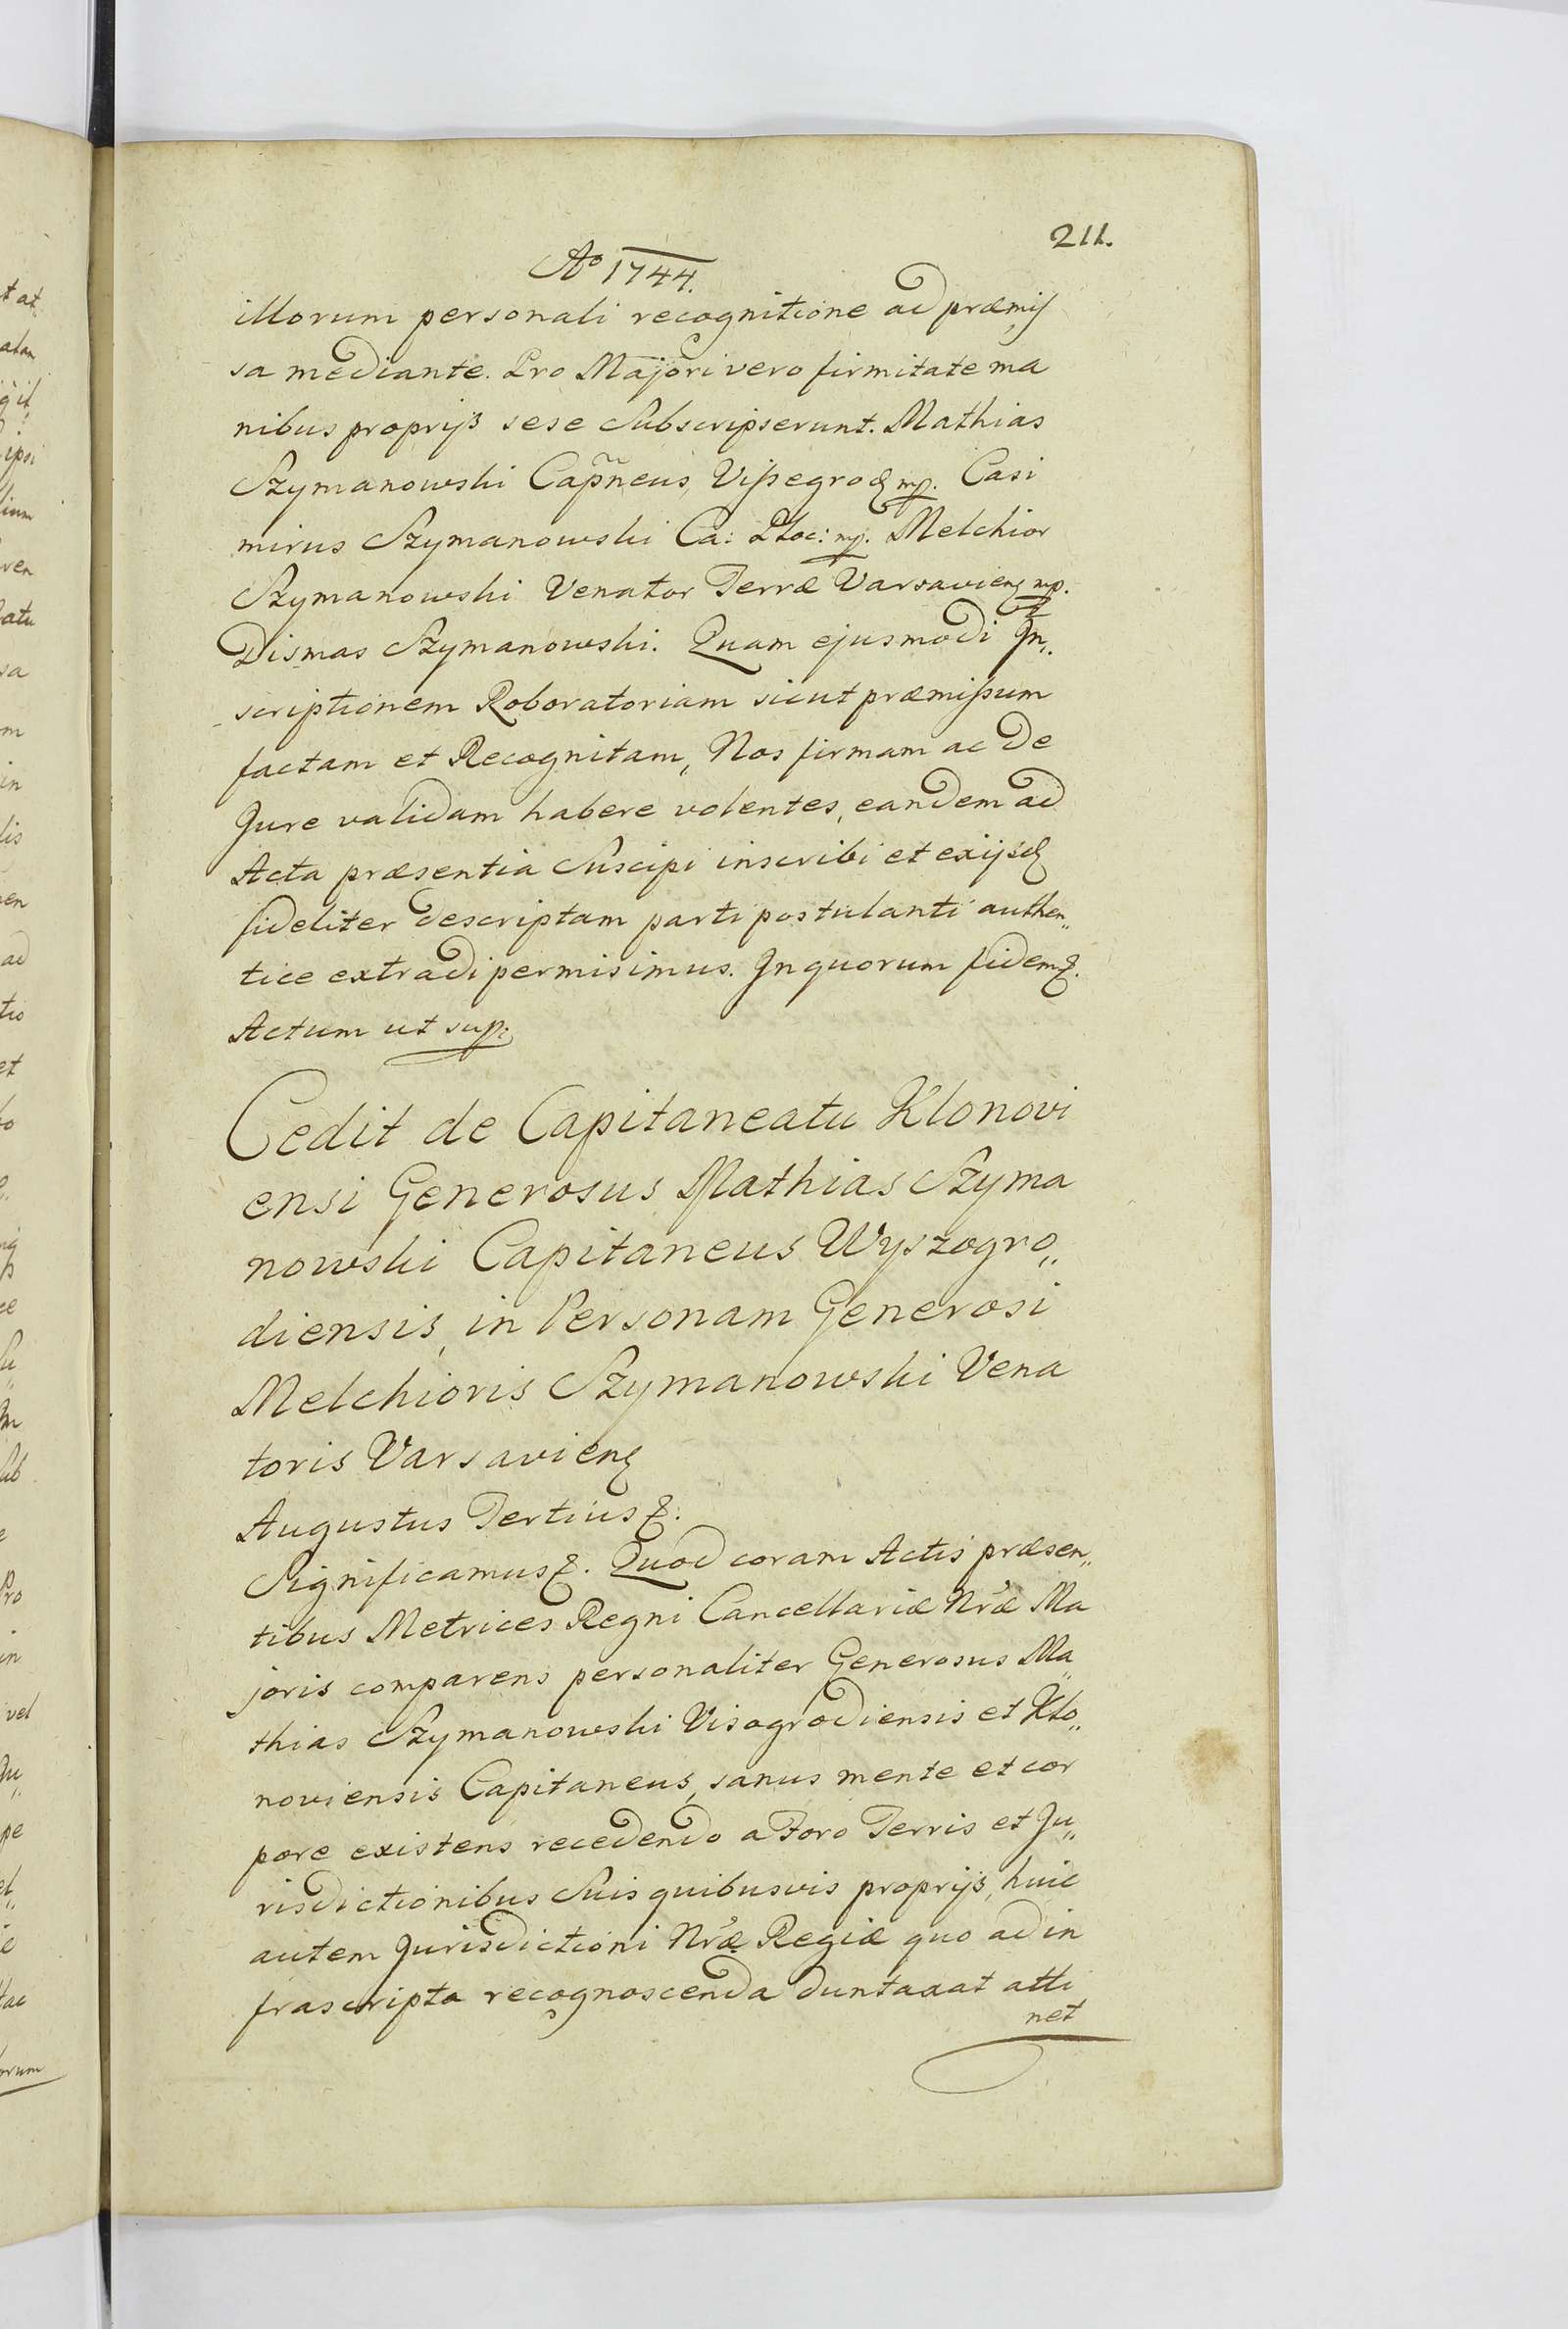 211.
Aº 1744.
illorum personali recognitione ad præmis
sa mediante. Pro Majori vero firmitate ma
nibus proprijs sese Subscripserunt. Mathias
Szymanowski Capñeus Vissegrod mp. Casi
mirus Szymanowski Ca: Ploc: mp. Melchior
Szymanowski Venator Terræ Varsaviens mp.
Dismas Szymanowski. Quam ejusmodi In„
scriptionem Roboratoriam sicut præmissum
factam et Recognitam, Nos firmam ac de
Jure validam habere volentes, eandem ad
Acta præsentia Suscipi inscribi et exijsd
fideliter descriptam parti postulanti authen„
tice extradi permisimus. In quorum fidem &.
Actum ut sup:
Cedit de Capitaneatu Klonovi
ensi Generosus Mathias Szyma
nowski Capitaneus Wyszogro„
diensis, in Personam Generosi
Melchioris Szymanowski Vena
toris Varsaviens
Augustus Tertius &.
Significamus &. Quod coram Actis præsen„
tibus Metrices Regni Cancellariæ Nræ Ma
joris comparens personaliter Generosus Ma„
thias Szymanowski Visogrodiensis et Klo„
noviensis Capitaneus, sanus mente et cor
pore existens recedendo a Foro Terris et Ju„
risdictionibus Suis quibusvis proprijs, huic
autem Jurisdictioni Nræ Regiæ quo ad in
frascripta recognoscenda duntaxat atti
net